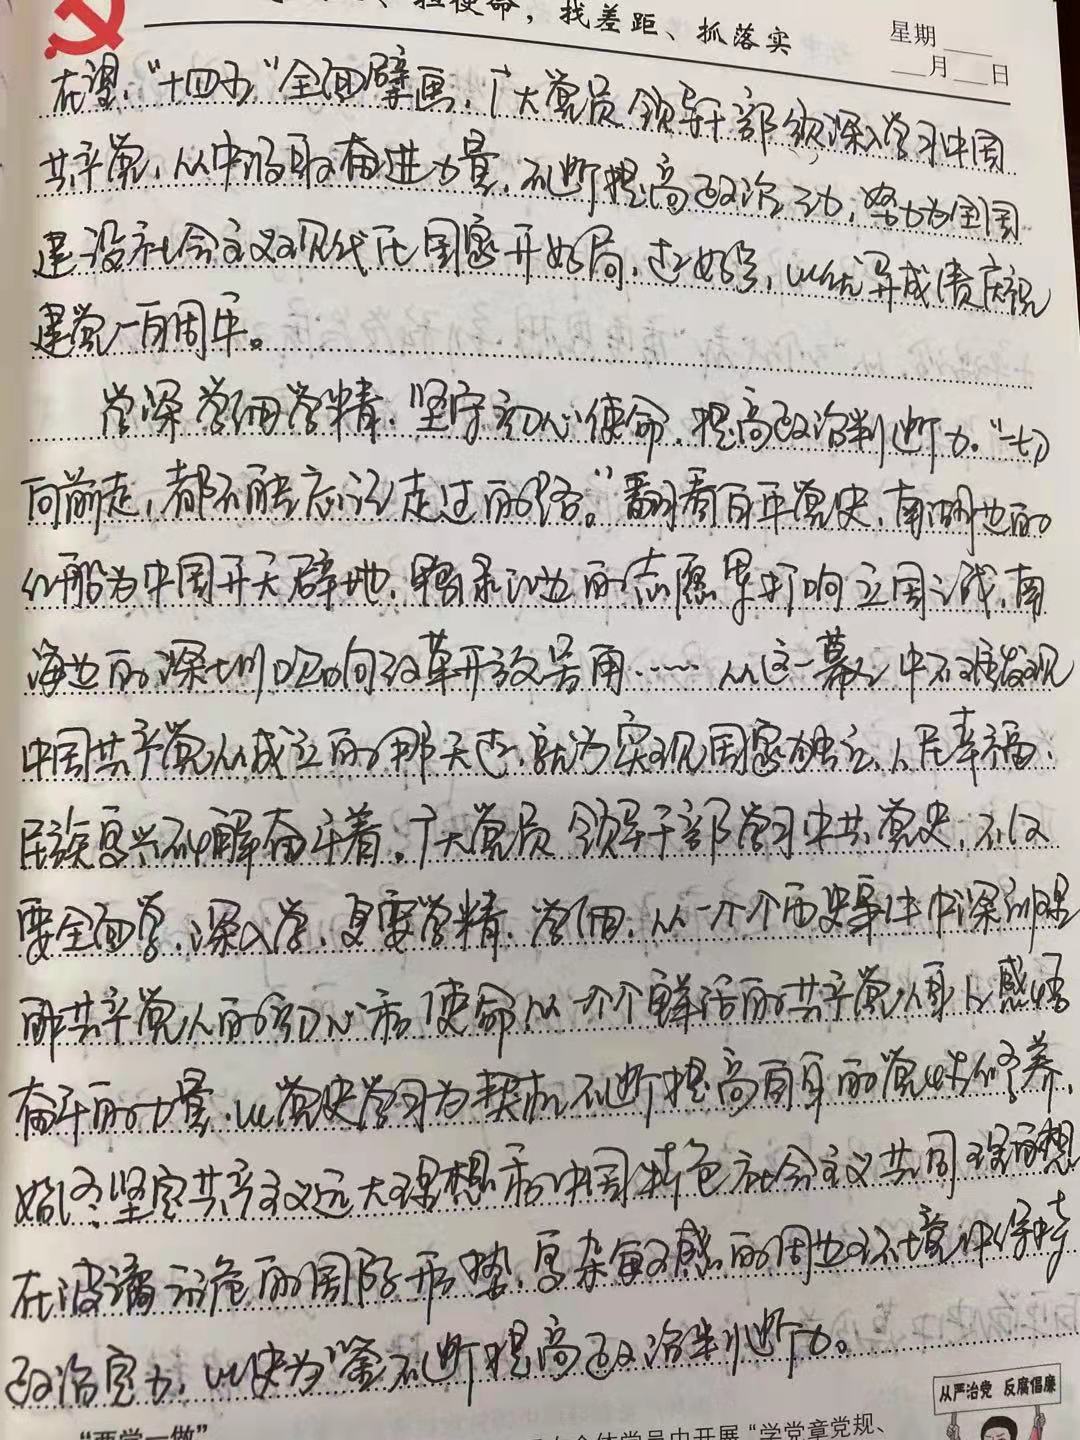 担使命，找差距、抓落实
星期
月 日
在望，“十四五”全面擘画，广大党员领导干部须深入学习中国
共产党，从中汲取奋进力量，不断提高政治力，努力为全国
建设社会主义现代化国家开好局，起好步，以优异成绩庆祝
建党一百周年。
学深学细学精，坚守初心使命，提高政治判断力。“一切
向前走，都不能忘记走过的路。”翻看百年党史，南湖边的
红船为中国开天辟地，鸭绿江边的志愿军打响立国之战，南
海边的深圳吹响改革开放号角……从这一幕幕中不难发现
中国共产党从成立的那天起，就为实现国家独立、人民幸福、
民族复兴不懈奋斗着。广大党员领导干部学习中共党史，不仅
要全面学，深入学，更要学精，学细，从一个个历史事件中深刻理
解共产党人的初心和使命，从一个个鲜活的共产党人身上感悟
奋斗的力量，以党史学习为契机不断提高自身的党性修养，
始终坚定共产主义远大理想和中国特色社会主义共同理想
在波谲云诡的国际形势，复杂敏感的周边环境中保持
政治定力，以史为鉴不断提高政治判断力。
从严治党 反腐倡廉
“两学一做”
全体党员中开展“学党章党规、